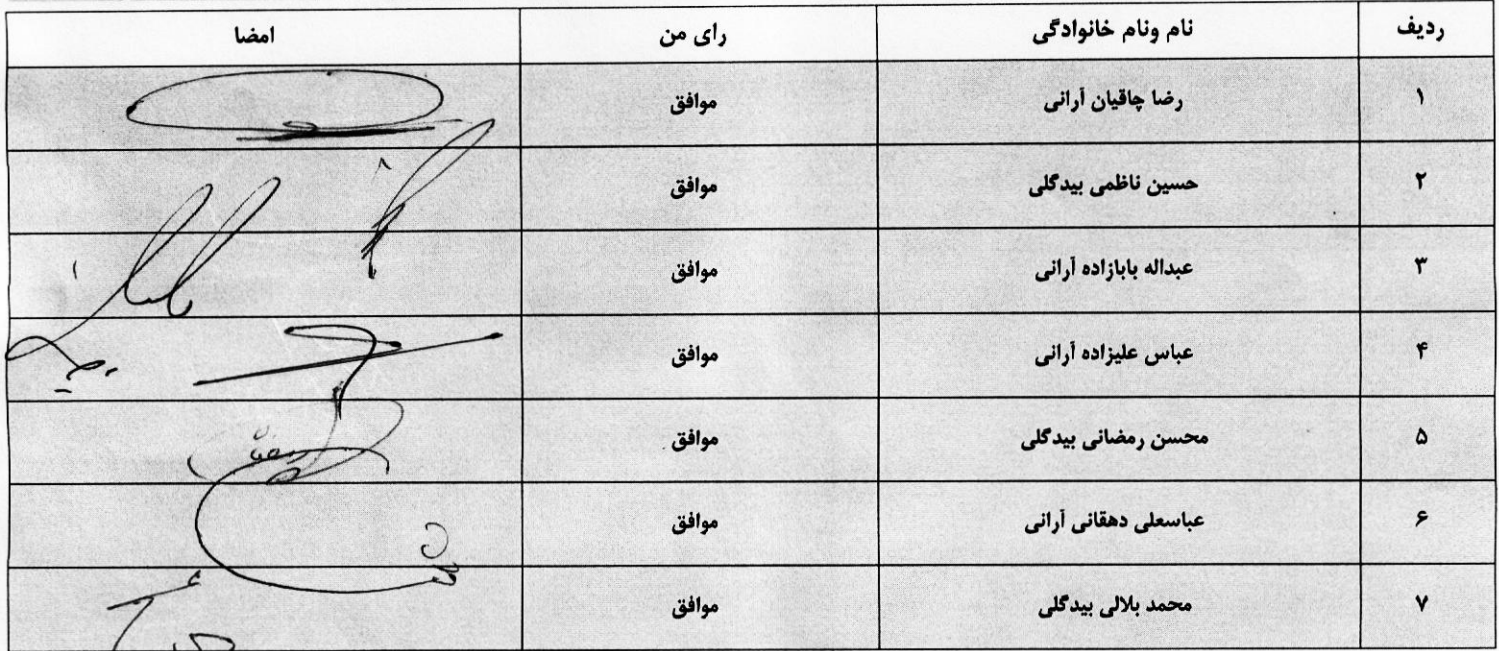 ردیف نام ونام خانوادگی رای من امضا
۱ رضا چاقیان آرانی موافق
۲ حسین ناظمی بیدگلی موافق
۳ عبداله بابازاده آرانی موافق
۴ عباس علیزاده آرانی موافق
۵ محسن رمضانی بیدگلی موافق
۶ عباسعلی دهقانی آرانی موافق
۷ محمد بلالی بیدگلی موافق